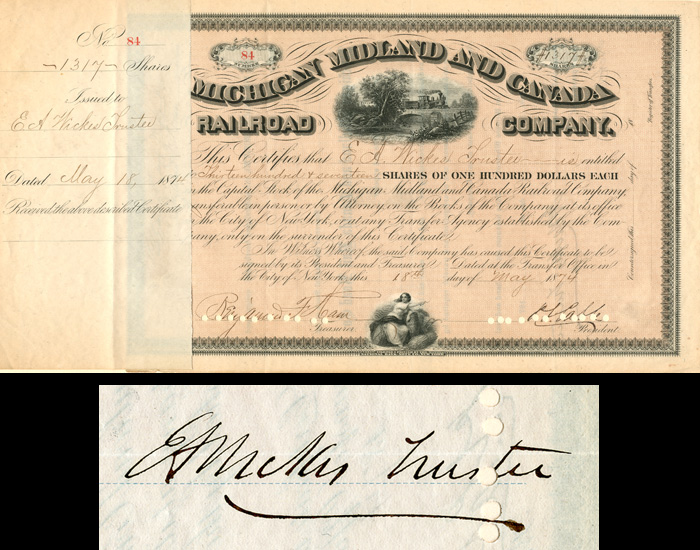 No. 84
1317 Shares
Issued to
E A Wickes Trustee
Dated May 18, 1874
Received the above described Certificate
84
1317
MICHIGAN MIDLAND AND CANADA
RAILROAD COMPANY.
This Certifies that E. A. Wickes Trustee is entitled
Thirteen hundred & seventeen SHARES OF ONE HUNDRED DOLLARS EACH
in the Capital Stock of the Michigan Midland and Canada Railroad Company
transferable in person or by Attorney on the Books of the Company at its office
in the City of New York, or at any Transfer Agency established by the Com
pany, only on the surrender of this Certificate
In Witness Whereof the said Company has caused this Certificate to be
signed by its President and Treasurer. Dated at the Transfer Office in
the City of New York this 18th day of May 1874
Treasurer. President.
E A Wickes Trustee